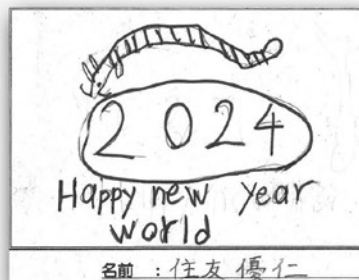 2024
Happy new year
world
名前 : 住友 優仁